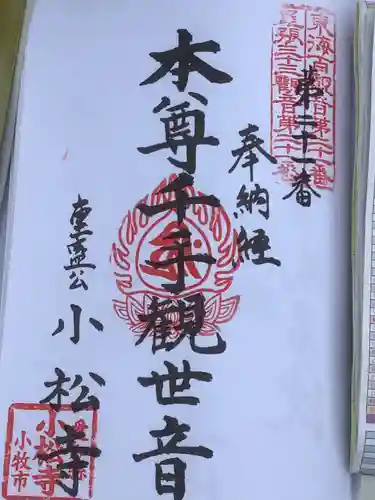 東海百観音第二十番
尾張三十三観音第二十一番
第二十一番
奉納経
本尊千手観世音
重盛公
小松寺
小松寺
小牧市